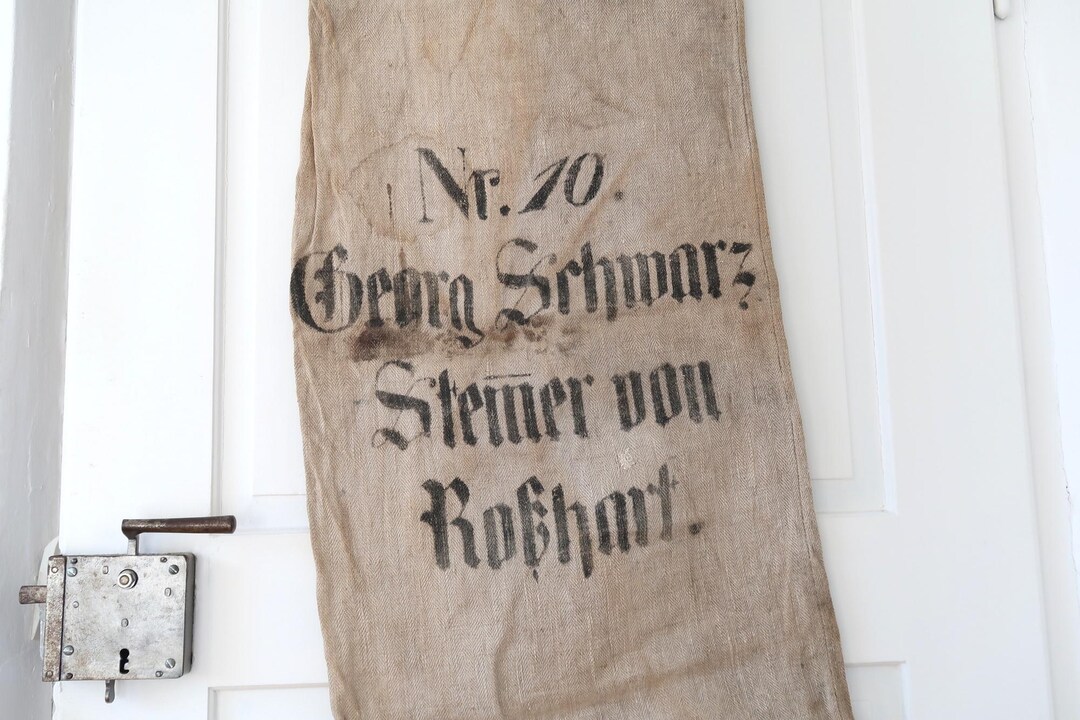 Nr. 10.
Georg Schwarz
Stem̅er von
Roßhart.